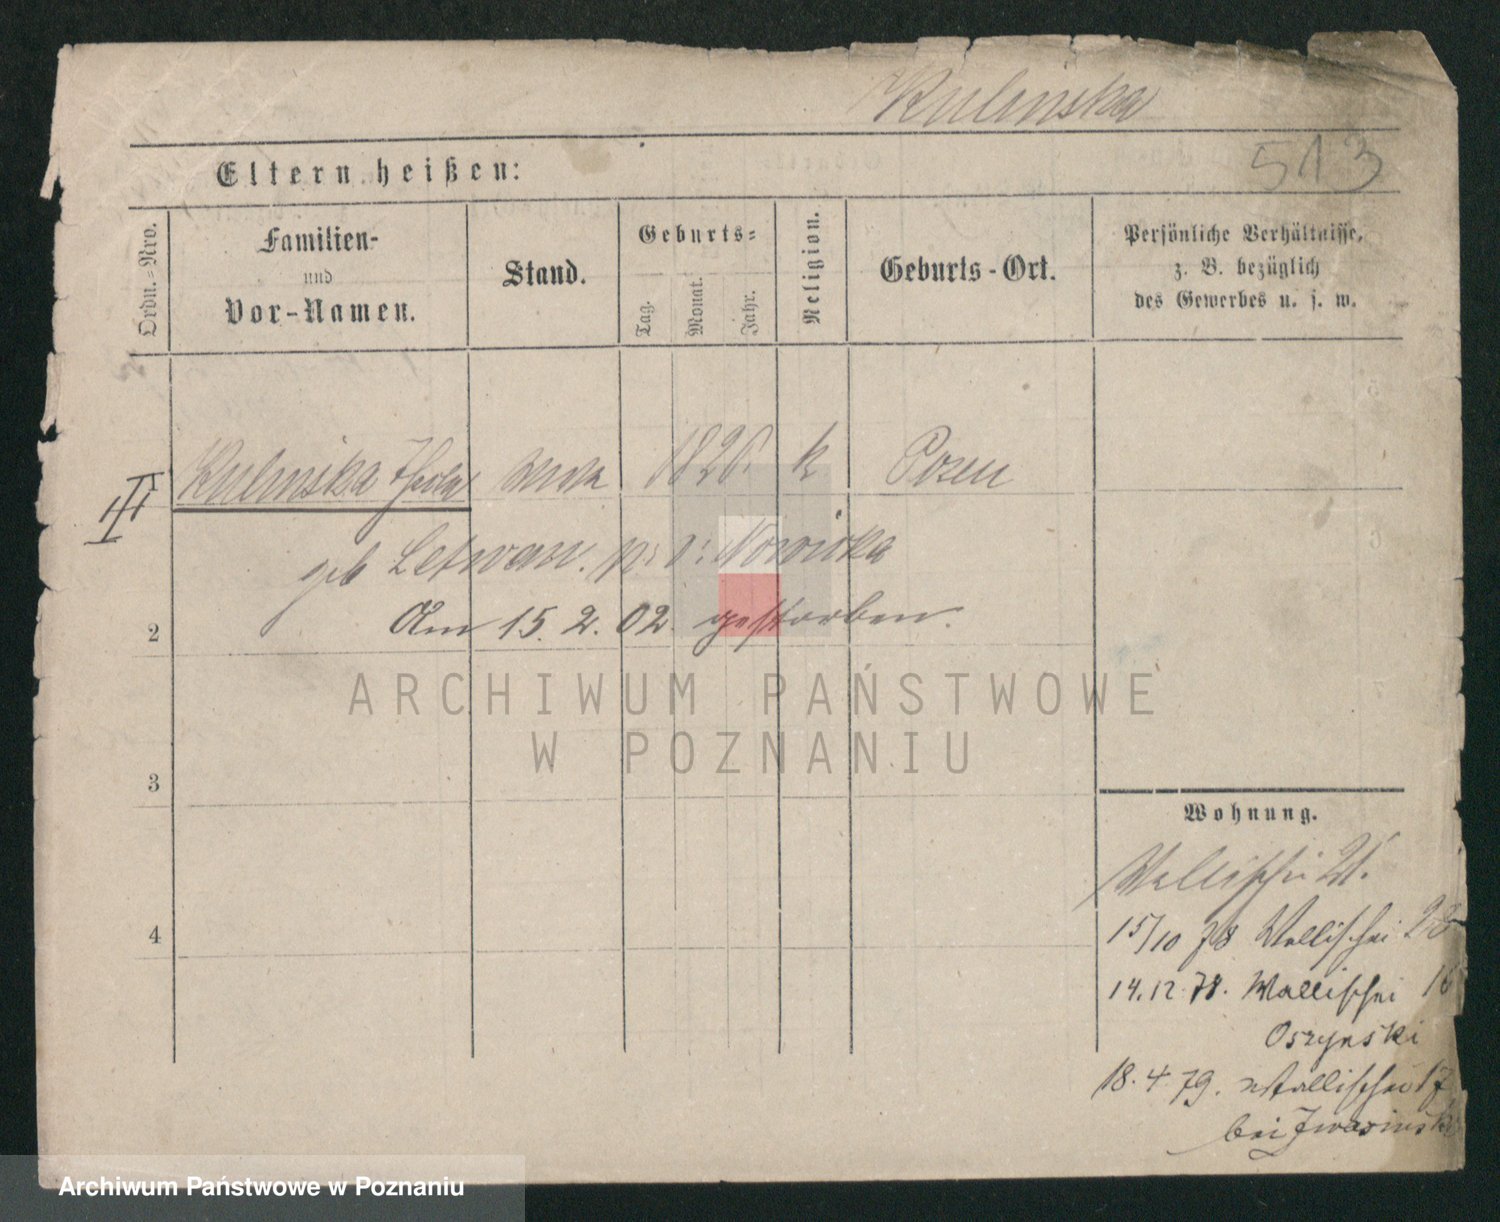 Kulinska
513
Eltern heißen:
Ordn.=Nro.
Familien-
und
Vor-Namen.
Stand.
Geburts=
Tag.
Monat.
Jahr.
Religion.
Geburts-Ort.
Persönliche Verhältnisse,
z. B. bezüglich
des Gewerbes u. s. w.
III
Kulinska Wwe 1826. k Posen
geb
Am 15. 2. 02. gestorben.
2
ARCHIWUM PAŃSTWOWE
W POZNANIU
3
Wohnung.
Wallischei 21.
15/10 78 Wallischei 28
4
14.12.78. Wallischei 16
Oszynski
18.4.79. Wallischei 17
bei Iwasinski
Archiwum Państwowe w Poznaniu